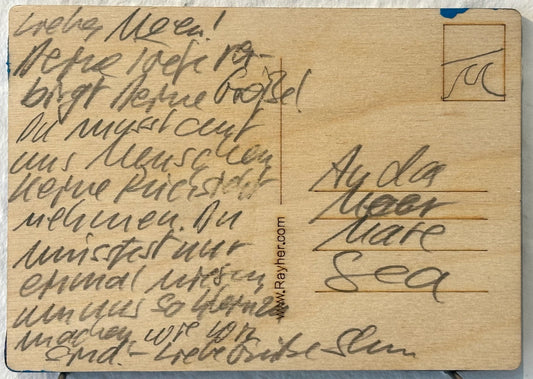 Liebes Meer!
Deine Tiefe ver-
birgt deine Größe!
Du musst auf
uns Menschen
keine Rücksicht
nehmen. Du
müsstest nur
einmal niesen,
um uns so klein zu
machen, wie wir
sind. – Liebe Grüße
www.Rayher.com
An da
Meer
Mare
Sea